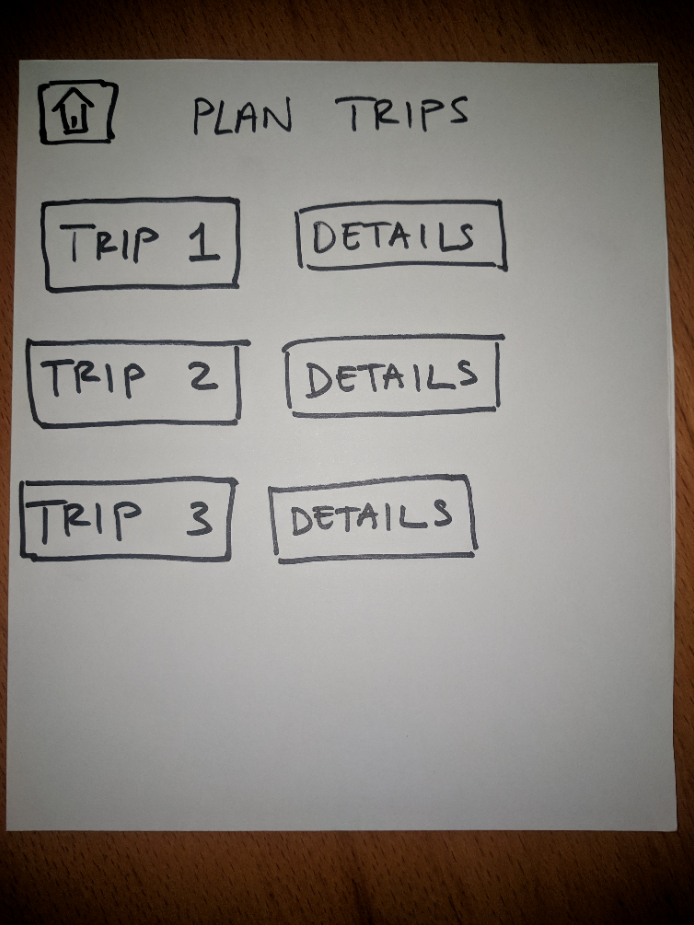 PLAN TRIPS
TRIP 1 DETAILS
TRIP 2 DETAILS
TRIP 3 DETAILS